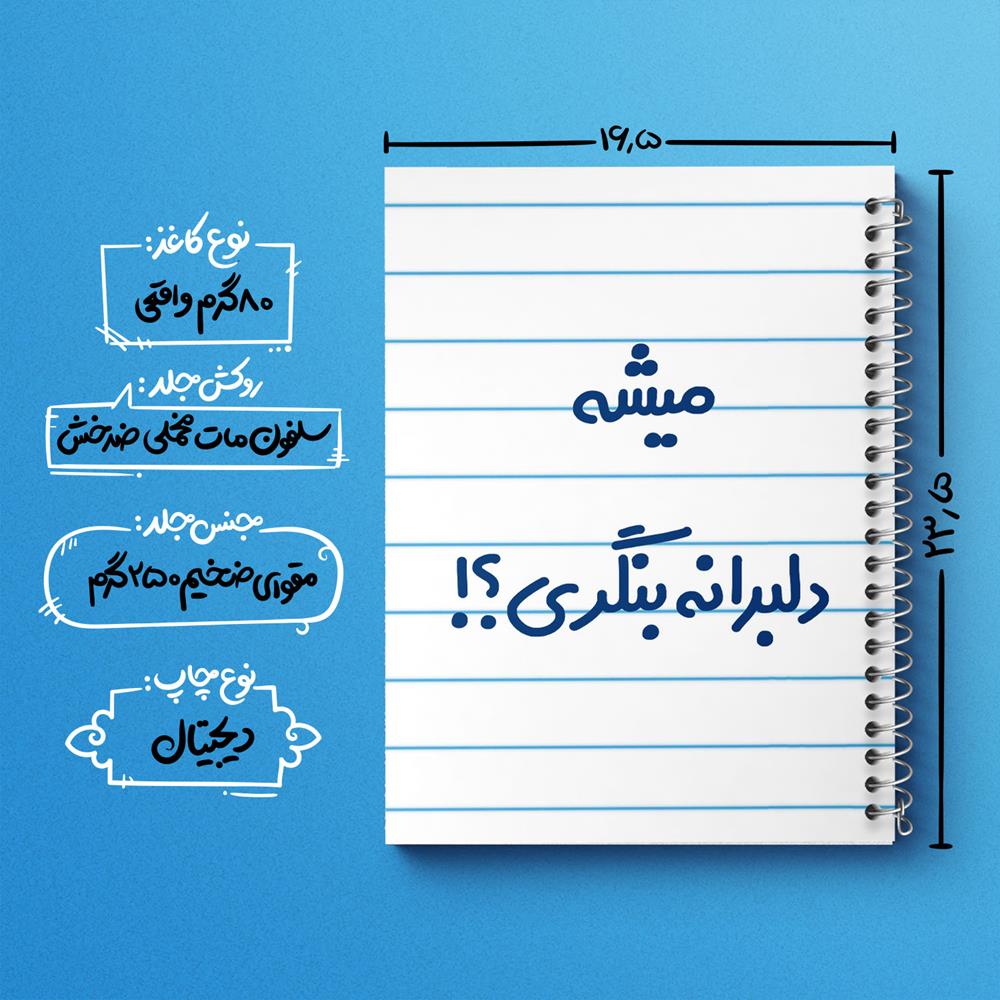 ۱۶٫۵
۲۳٫۵
میشه
دلبرانه بنگری؟!
نوع کاغذ:
۸۰گرم واقعی
روکش جلد:
سلفون مات مخملی ضدخش
جنس جلد:
مقوای ضخیم ۲۵۰ گرم
نوع چاپ:
دیجیتال